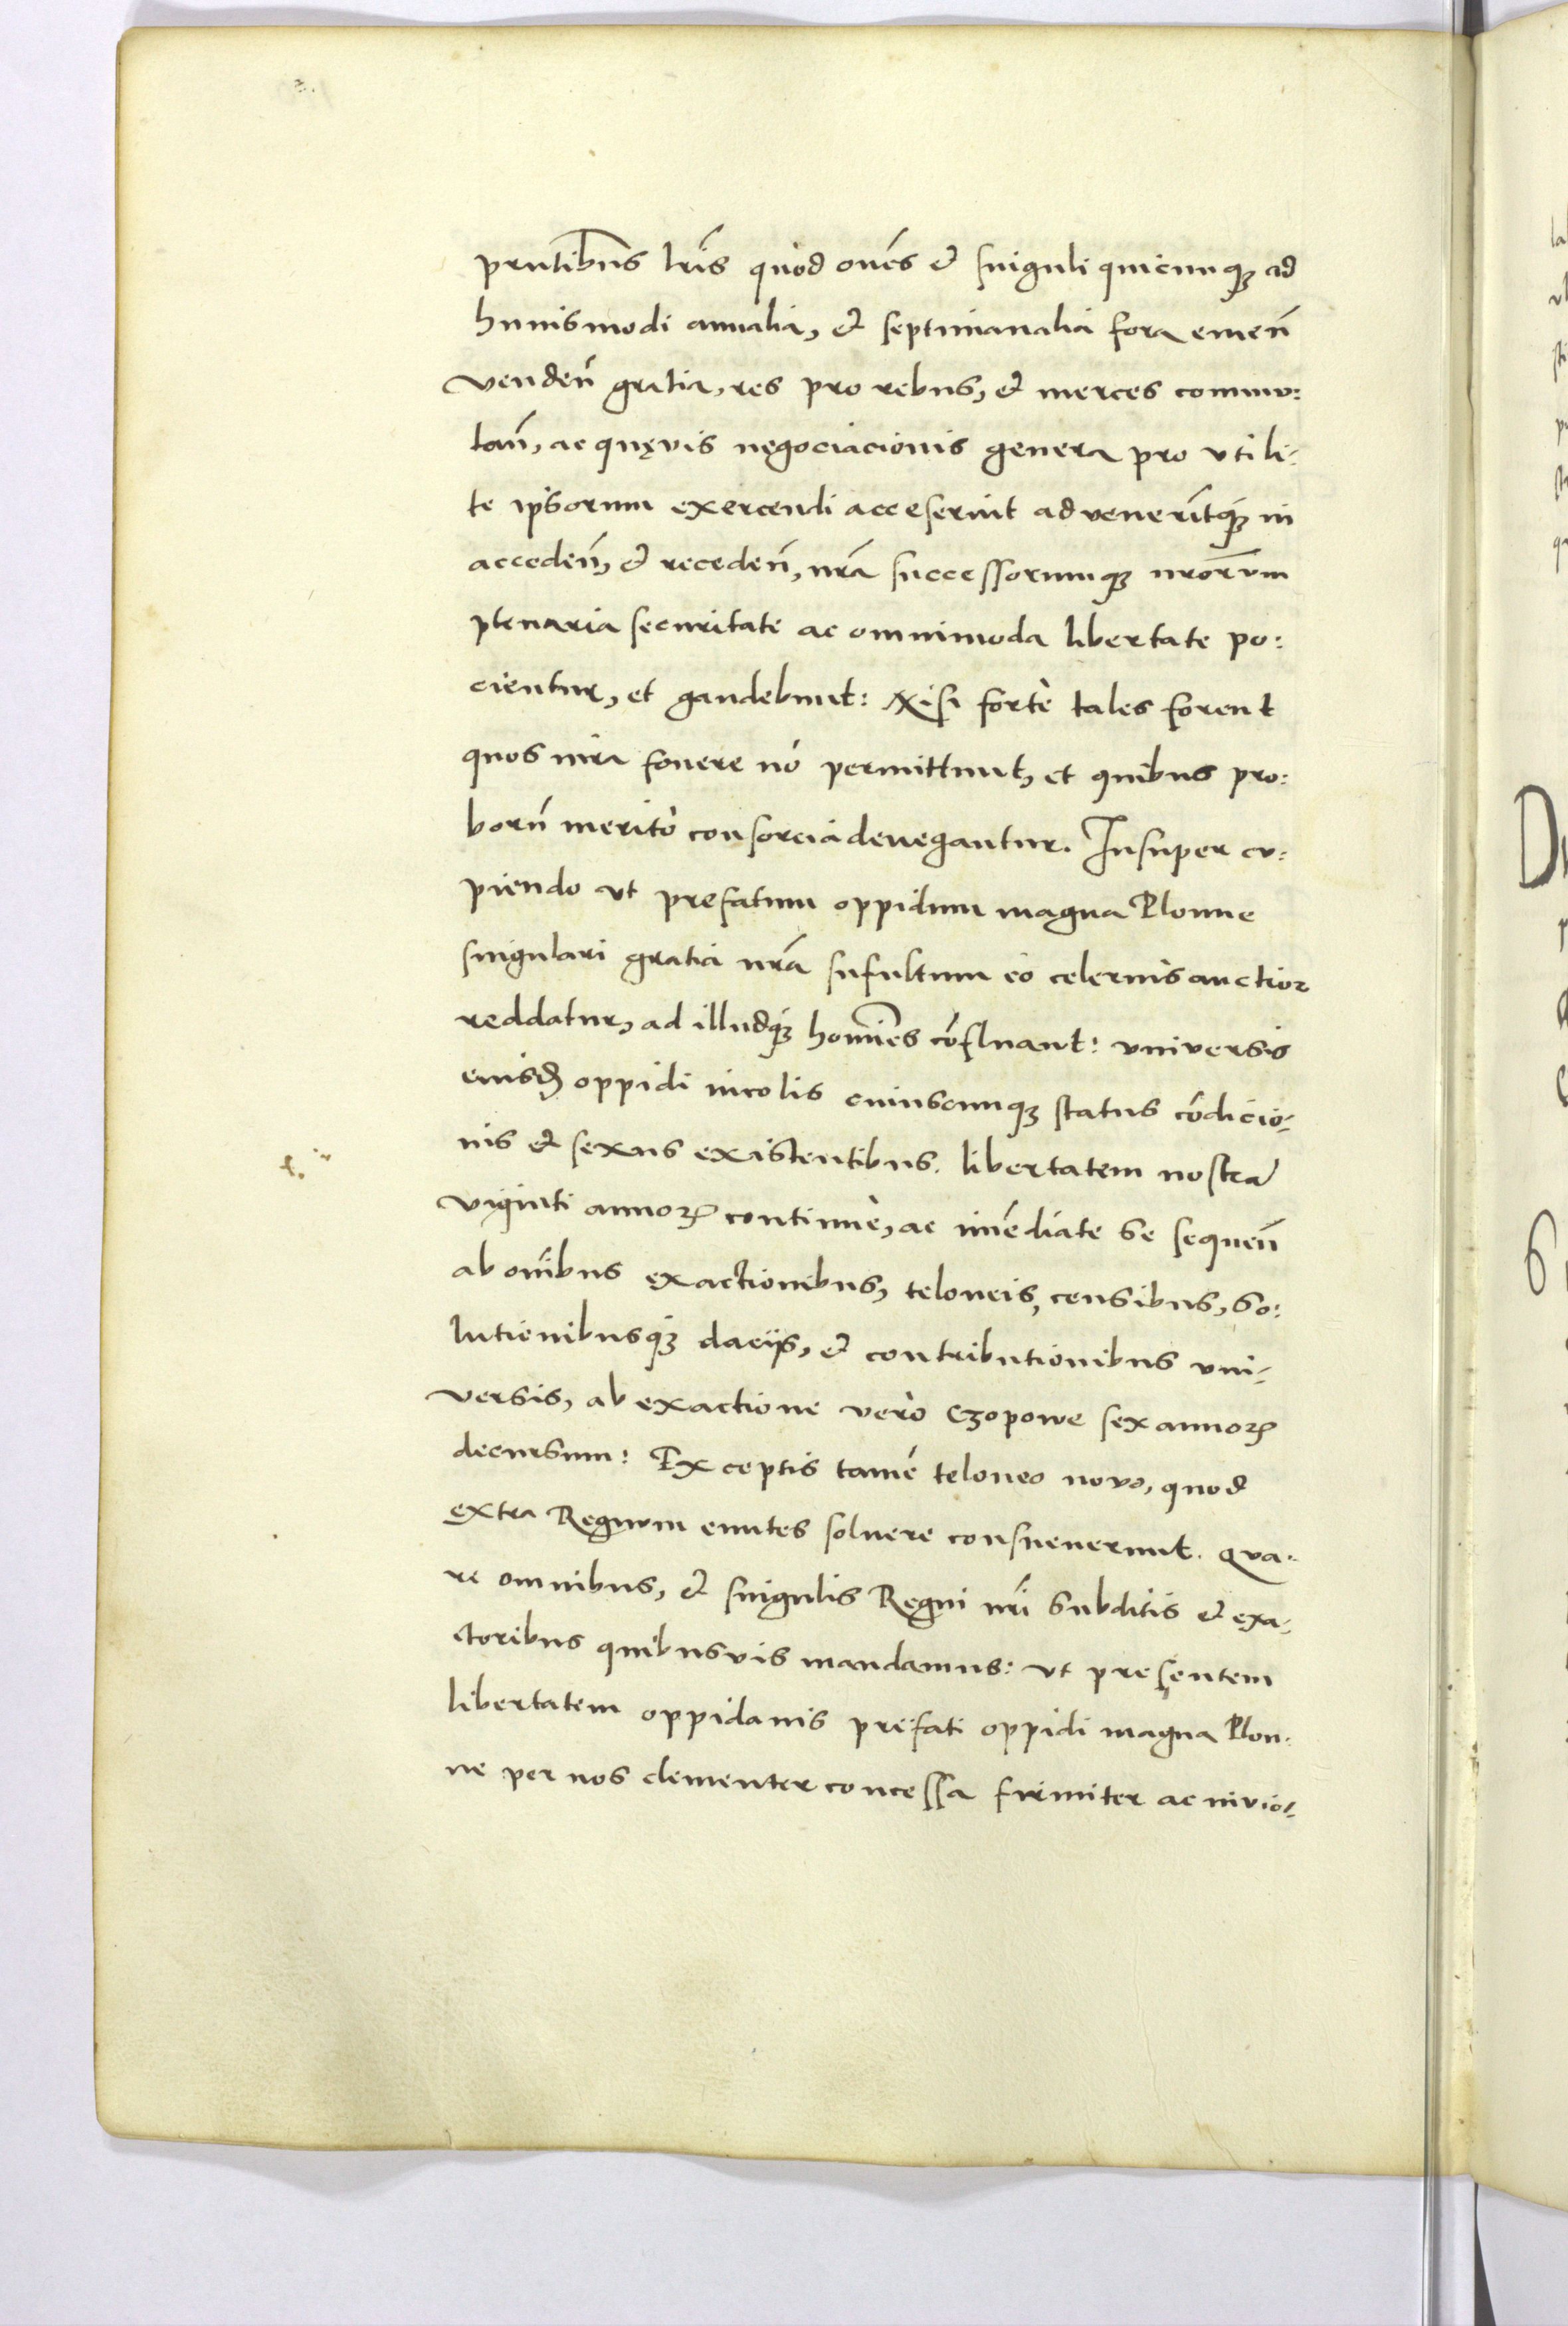 prntibus lr̃is quòd oẽs & singuli quicunq3 ad
huiusmodi annalia, & septimanalia fora emeñ
vendeñ gratia, res pro rebus, & merces commu:
tañ, ac quęvis nęgociacionis genera pro vtili-
te ip̃sorum exercendi acceserint advenerĩtq3 in
accedeñ, & recedeñ, nr̃a successorumq3 nr̃orum
plenaria securitate ac omnimoda libertate po:
cientur, et gaudebunt: Nisi fortè tales forent
quos iura fouere nõ permittunt, et quibus pro:
borũ meritò consorcia denegantur. Insuper cu:
piendo vt prefatum oppidum magna Plonne
singulari gratia nr̃a sufultum eò celerius auctior
reddatur, ad illudq3 homĩes cõfluant: vniversis
eiusd̃ oppidi incolis cuiuscunq3 status cõdicio-
nis & sexus existentibus. libertatem nostrã
viginti annoꝝ continuè, ac imẽdiate se sequeñ
ab oĩbus exactionibus, teloneis, censibus, so:
lutionibusq3 daciis, & contributionibus vni-
versis, ab exactione verò Czopowe sex annoꝝ
decursum: Exceptis tamẽ teloneo novo, quod
extra Regnum euntes soluere consueuerunt. Qua-
re omnibus, & singulis Regni nr̃i subditis & exa-
ctoribus quibusvis mandamus: vt presentem
libertatem oppidanis prefati oppidi magna Plon-
ne per nos clementer concessa firmiter ac inviol-
D